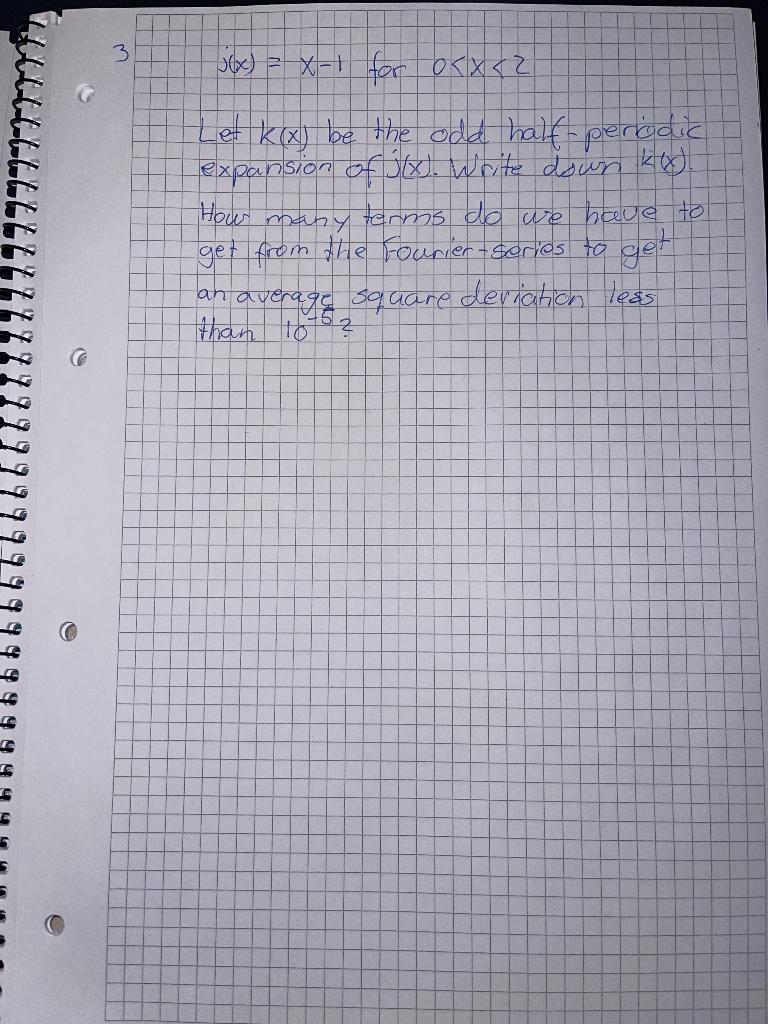 3
j(x) = x-1 for 0<x<2
Let k(x) be the odd half-periodic
expansion of j(x). Write down k(x).
How many terms do we have to
get from the Fourier-series to get
an average square deviation less
than 10^-5?